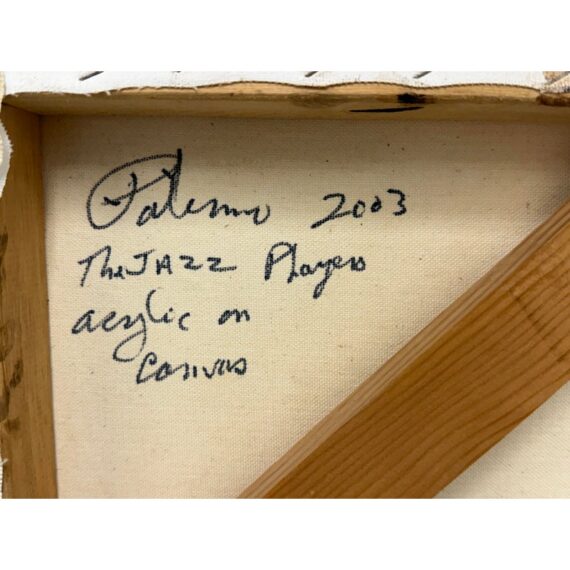 Palermo 2003
The JAZZ Players
acrylic on
canvas